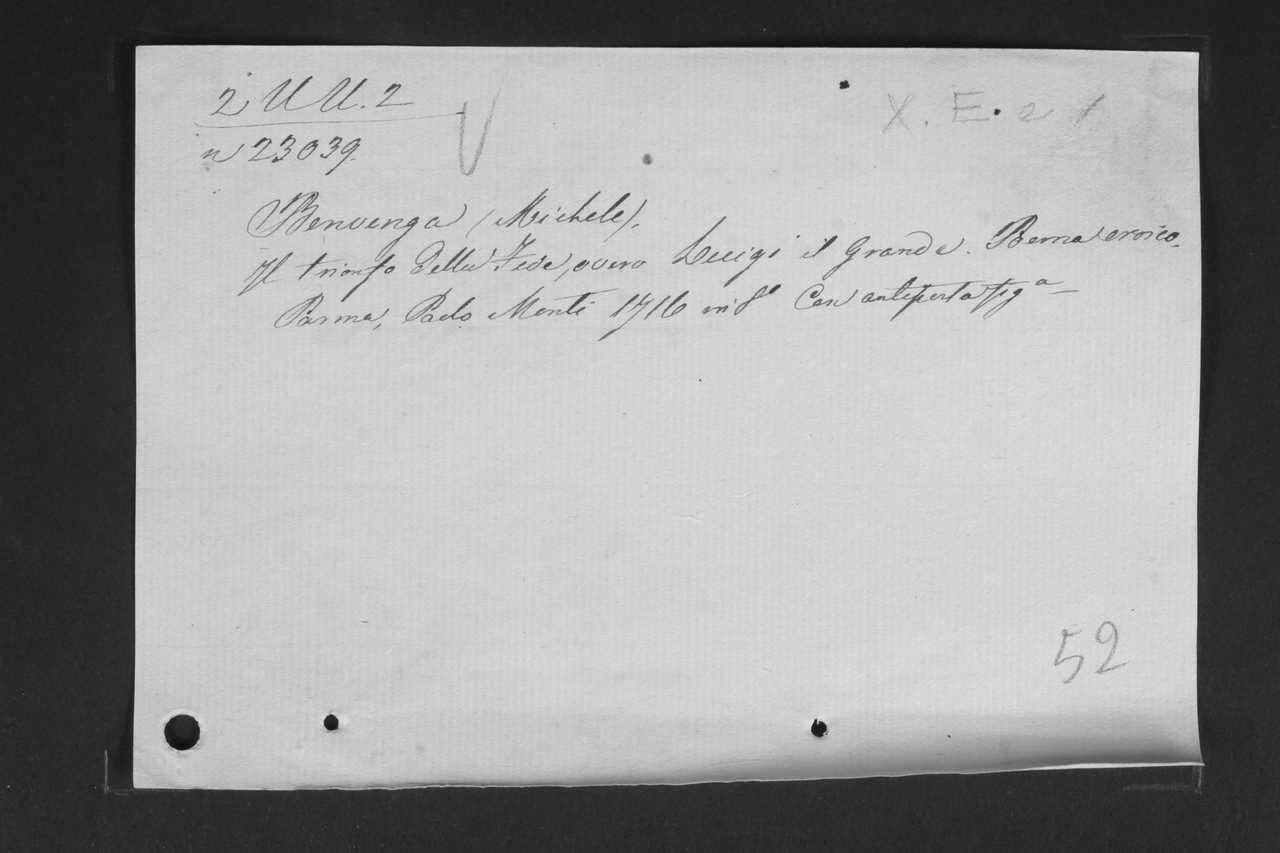 2 U U. 2
X. E. 2 1
n 23039.
Benvenga (Michele).
Il trionfo della Fede, overo Luigi il Grande. Poema eroico.
Parma, Paolo Monti 1716 in 8° Con antiporta figª
52